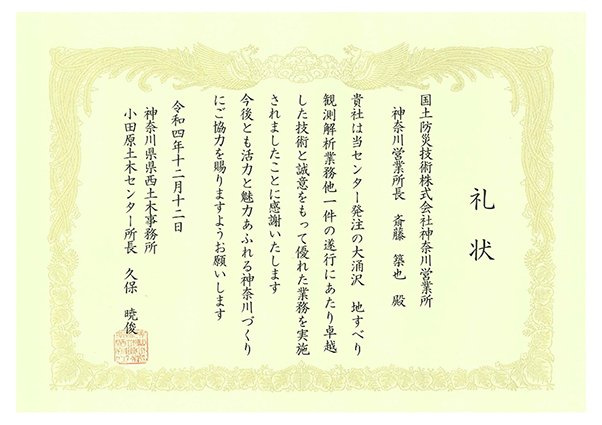 礼状
国土防災技術株式会社神奈川営業所
神奈川営業所長 斎藤 築也 殿
貴社は当センター発注の大涌沢 地すべり
観測解析業務他一件の遂行にあたり卓越
した技術と誠意をもって優れた業務を実施
されましたことに感謝いたします
今後とも活力と魅力あふれる神奈川づくり
にご協力を賜りますようお願いします
令和四年十二月十二日
神奈川県県西土木事務所
小田原土木センター所長 久保 暁俊